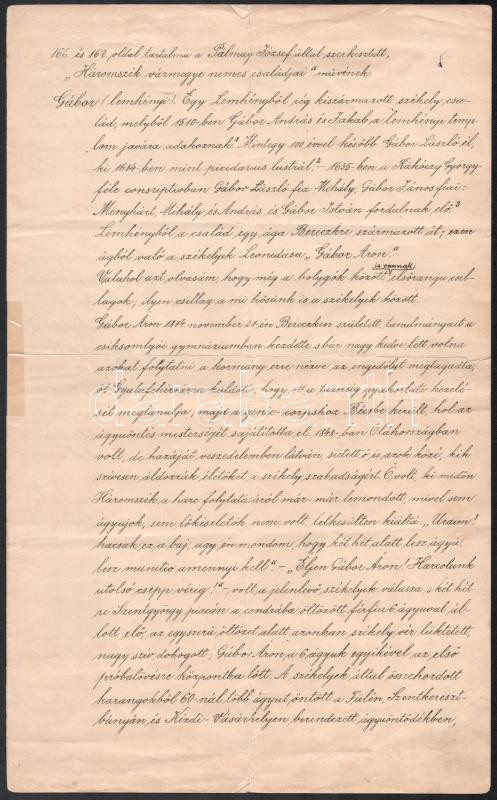 166. és 167. oldal tartalma a Pálmay József által szerkesztett,
„Háromszék vármegye nemes családjai" művének.
Gábor (lemhényi). Egy Lemhényből rég kiszármazott székely csa-
lád, melyből 1510-ben Gábor András és Jakab a lemhényi temp-
lom javára adakoznak.¹ Mintegy 100 évvel később Gábor László él,
ki 1614-ben mint picidarius lustrál.² – 1635-ben a Rákóczy György-
féle conscriptioban Gábor László fia Mihály, Gábor János fiai:
Menyhárt, Mihály és András és Gábor István fordulnak elő.³
Lemhényből a család egy ága Bereczkre származott át; ezen
ágból való a székelyek Leonidasa „Gábor Áron."
is vannak
Valahol azt olvasám, hogy még a bolygók között elsőrangu csil-
lagok; ilyen csillag a mi hősünk is a székelyek között.
Gábor Áron 1814 november 27-én Bereczken született, tanulmányait a
csiksomlyói gymnáziumban kezdette s bár nagy kedve lett volna
azokat folytatni a kormány erre nézve az engedélyt megtagadta,
őt Gyulafehérvárra küldöte, hogy ott a tüzérség gyakorlati kezelé-
sét megtanulja; majd a genie-corpshoz Bécsbe került, hol az
ágyuöntés mesterségét sajátította el. 1848-ban Oláhországban
volt, de hazáját veszedelemben látván, sietett ő is azok közé, kik
szivesen áldozzák életöket a székely szabadságért. Ő volt, ki midőn
Háromszék a harc folytatásáról már-már lemondott, mivel sem
ágyujok, sem lőkészletök nem volt, lelkesülten kiáltá: „Uraim!
hacsak ez a baj, ugy én mondom, hogy két hét alatt lesz ágyú,
lesz munitio amennyi kell". – „Éljen Gábor Áron! Harcolunk
utolsó csepp vérig!" – volt a jelenlevő székelyek válasza s két hét-
re Szentgyörgy piacán a condrába öltözött férfiu 6 ágyuval ál-
lott elő; az egyszerű öltözet alatt azonban székely vér lüktetett,
nagy sziv dobogott; Gábor Áron a 6 ágyuk egyikével az első
próbalövésre központba lőtt. A székelyek által összehordott
harangokból 60-nál több ágyut öntött a Fülén, Szentkereszt-
bányán, és Kézdi-Vásárhelyen berendezett ágyuöntödékben,